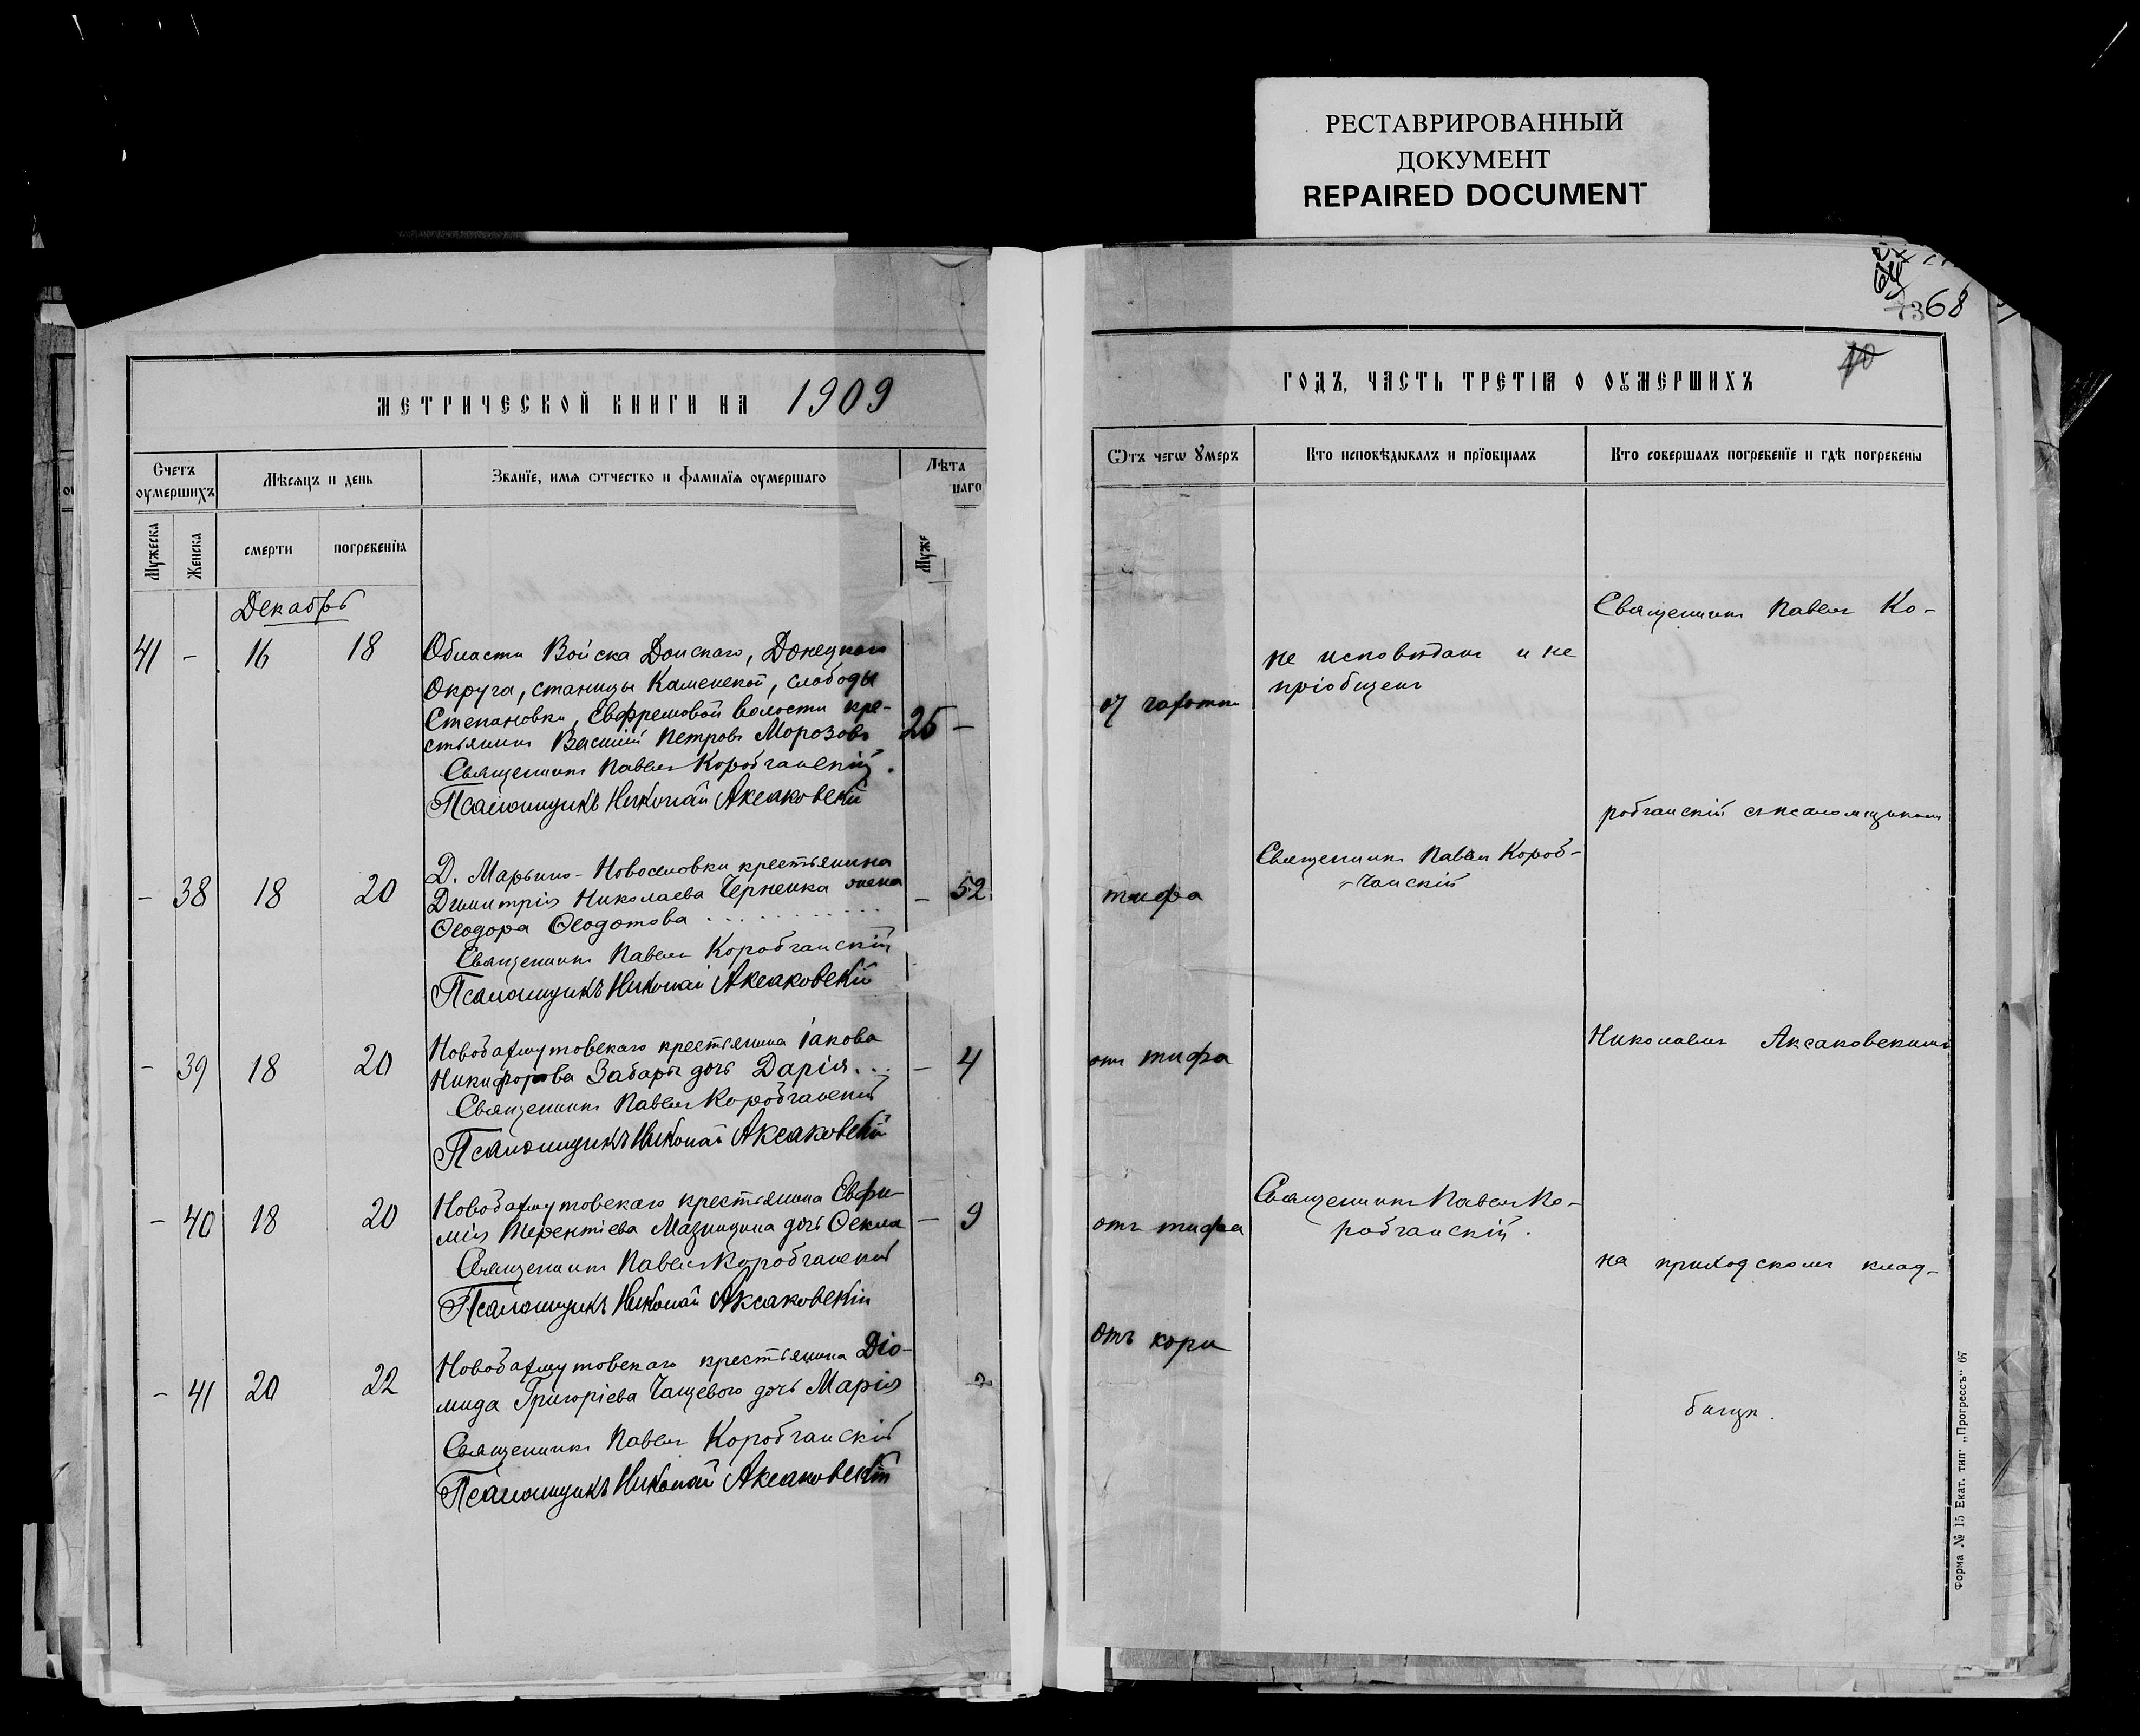 РЕСТАВРИРОВАННЫЙ
ДОКУМЕНТ
REPAIRED DOCUMENT
МЕТРИЧЕСКОЙ КНИГИ НА 1909
Счетъ оумершихъ
Мѣсяцъ и день
Званїе, имѧ ѿтчество и фамилїѧ оумершаго
Лѣта
шаго
Мужеска
Женска
смерти
погребенїѧ
Муже
Декабрь
41 - 16 18 Области Войска Донскаго, Донецкаго
Округа, станицы Каменской, слободы
Степановки, Евфремовой волости кре-
стьянинъ Василій Петровъ Морозовъ 25 -
Священникъ Павелъ Коробчанскій.
Псаломщикъ Николай Аксаковскій
- 38 18 20 Д. Марьино-Новоселовки крестьянина
Димитрія Николаева Черненка жена - 52.
Ѳеодора Ѳеодотова
Священникъ Павелъ Коробчанскій
Псаломщикъ Николай Аксаковскій
- 39 18 20 Новобахмутовскаго крестьянина Іакова
Никифорова Забары дочь Дарія - 4
Священникъ Павелъ Коробчанскій
Псаломщикъ Николай Аксаковскій
- 40 18 20 Новобахмутовскаго крестьянина Евфи-
мія Терентіева Мазницина дочь Ѳекла - 9
Священникъ Павелъ Коробчанскій
Псаломщикъ Николай Аксаковскій
- 41 20 22 Новобахмутовскаго крестьянина Діо-
мида Григоріева Чащевого дочь Марія 2
Священникъ Павелъ Коробчанскій
Псаломщикъ Николай Аксаковскій
68
70
ГОДЪ, ЧАСТЬ ТРЕТІЯ О ОУМЕРШИХЪ
Ѿтъ чегѡ ᲂумеръ
Кто исповѣдывалъ и прїобщалъ
Кто совершалъ погребенїе и гдѣ погребены
Священникъ Павелъ Ко-
не исповѣданъ и не
пріобщенъ
отъ чахотки
робчанскій съ псаломщикомъ
Священникъ Павелъ Короб-
чанскій
тифа
Николаемъ Аксаковскимъ
отъ тифа
Священникъ Павелъ Ко-
робчанскій.
отъ тифа
на приходскомъ клад-
отъ кори
бищѣ.
Форма № 15 Екат. тип. „Прогрессъ" 67